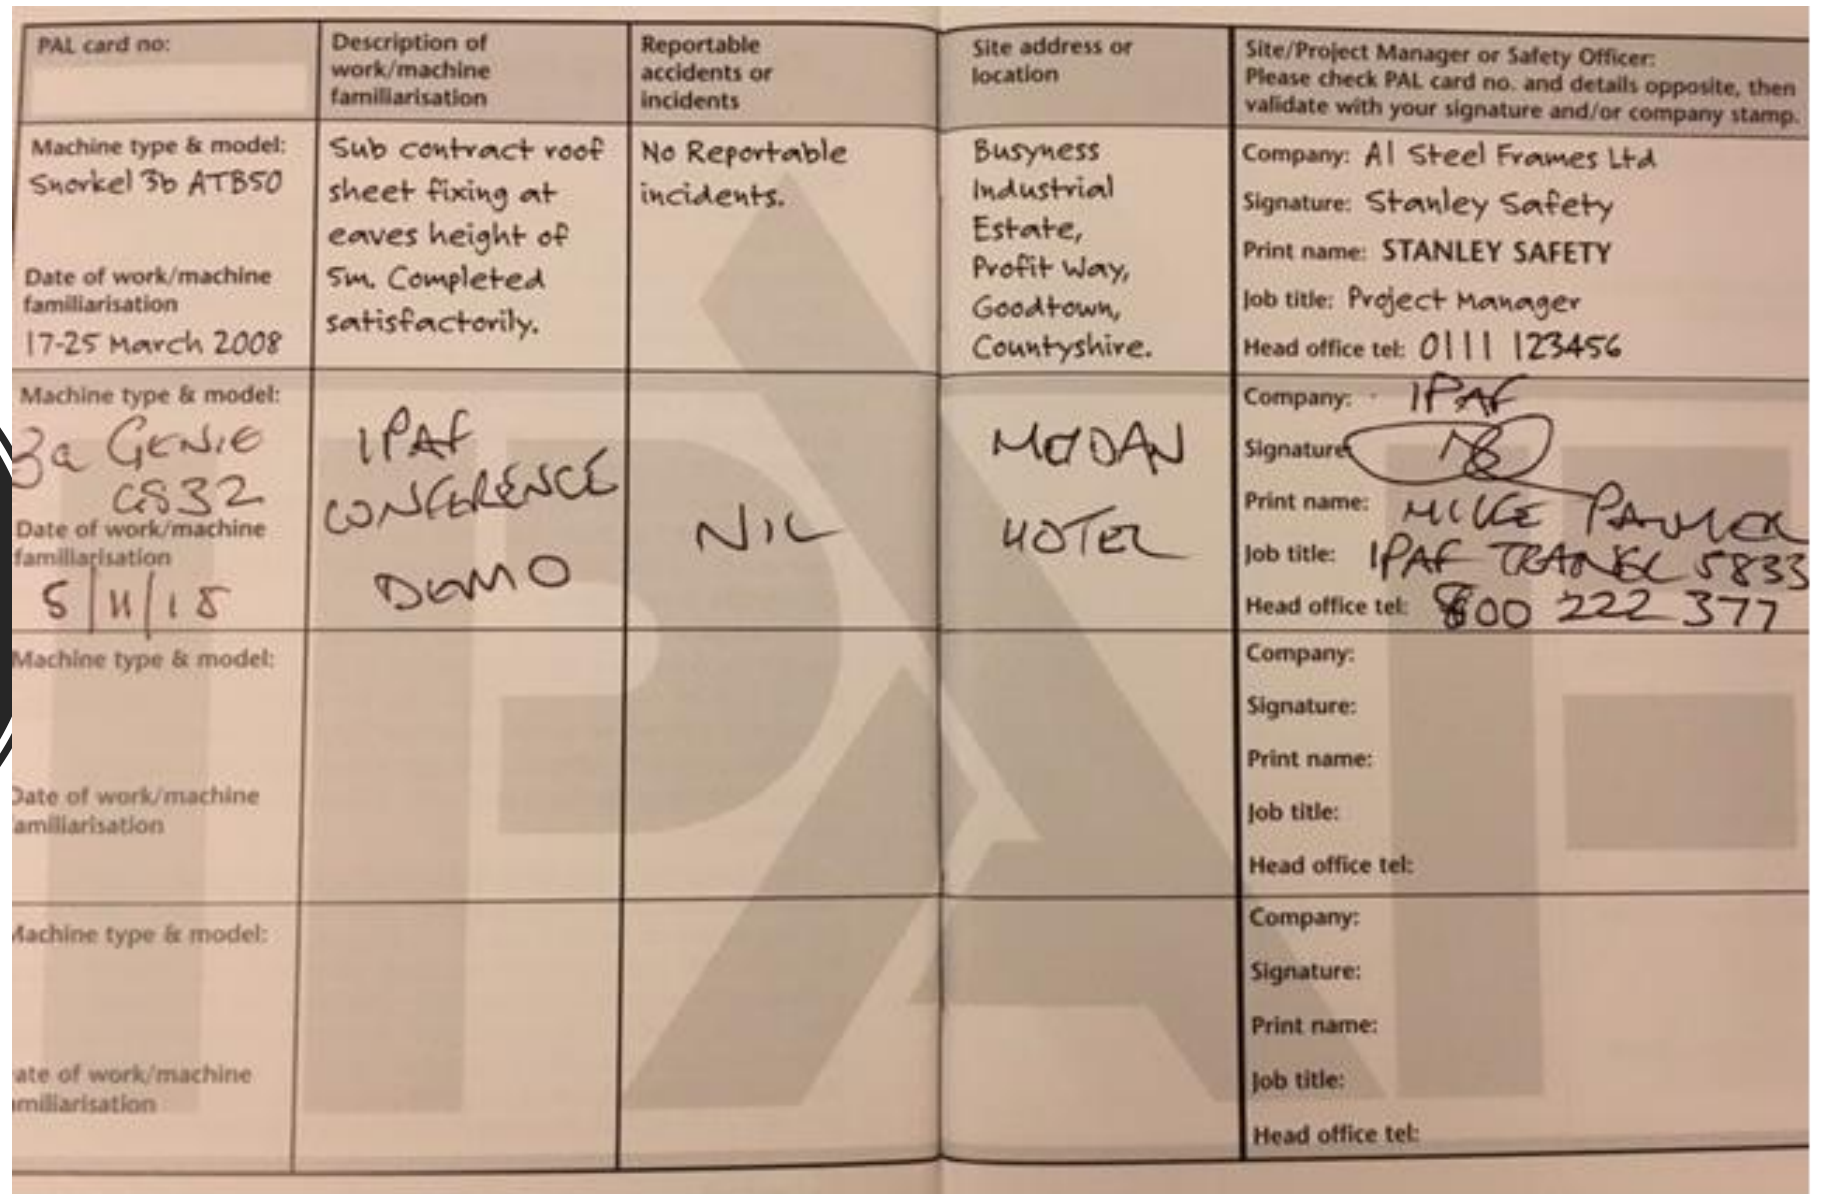 PAL card no:
Description of
work/machine
familiarisation
Reportable
accidents or
incidents
Site address or
location
Site/Project Manager or Safety Officer:
Please check PAL card no. and details opposite, then
validate with your signature and/or company stamp.
Machine type & model:
Snorkel 3b ATB50
Date of work/machine
familiarisation
17-25 March 2008
Sub contract roof
sheet fixing at
eaves height of
5m. Completed
satisfactorily.
No Reportable
incidents.
Busyness
Industrial
Estate,
Profit Way,
Goodtown,
Countyshire.
Company: A1 Steel Frames Ltd
Signature: Stanley Safety
Print name: STANLEY SAFETY
Job title: Project Manager
Head office tel: 0111 123456
Machine type & model:
3a GENIE
GS32
Date of work/machine
familiarisation
5/11/15
IPAF
CONFERENCE
DEMO
NIL
HOTEL
Company: IPAF
Signature
Print name: MIKE
Job title: IPAF 5833
Head office tel: 800 222 377
Machine type & model:
Date of work/machine
familiarisation
Company:
Signature:
Print name:
Job title:
Head office tel:
Machine type & model:
ate of work/machine
miliarisation
Company:
Signature:
Print name:
Job title:
Head office tel:
IPAF